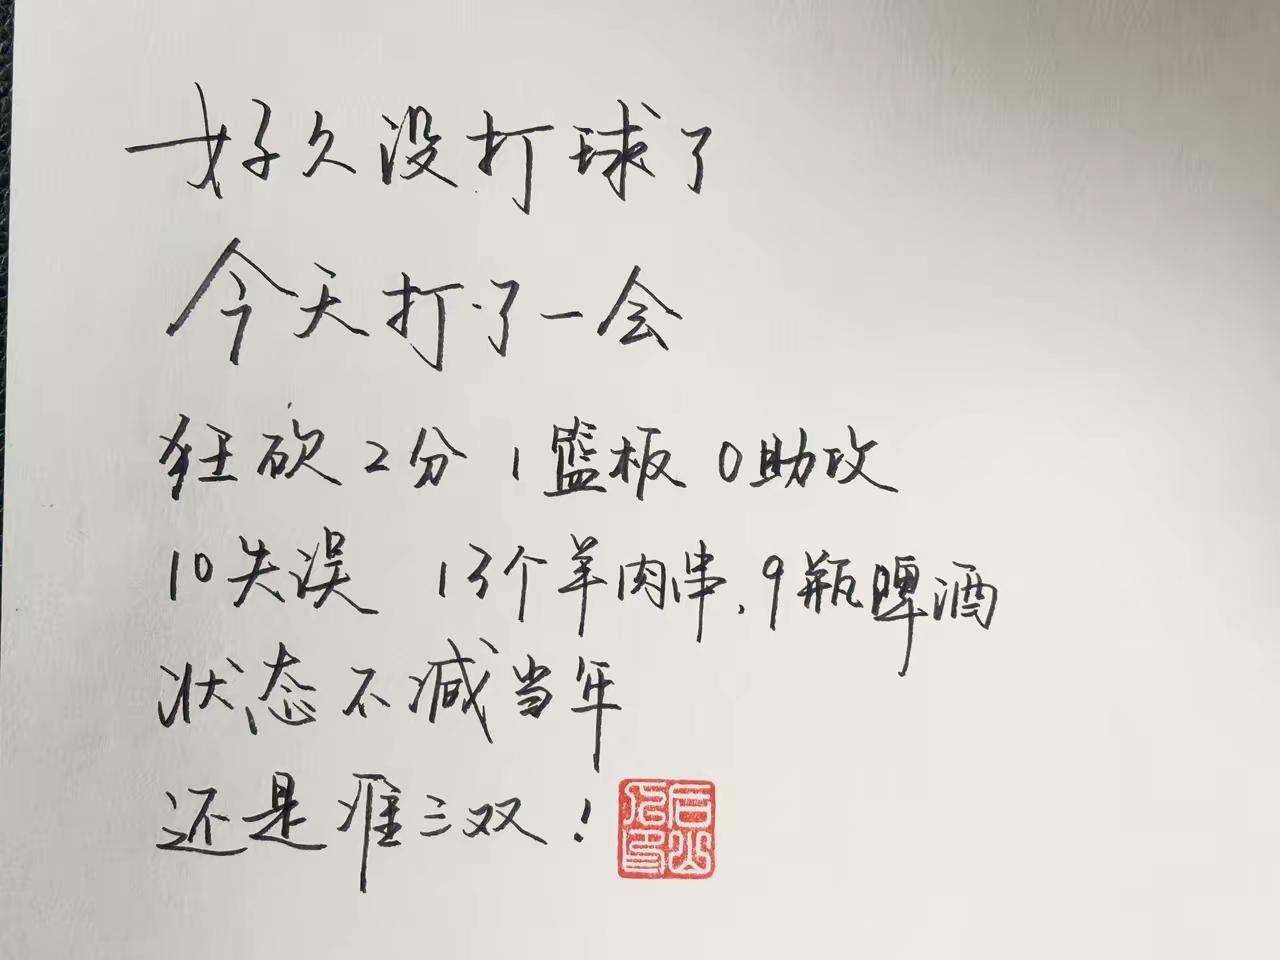 好久没打球了
今天打了一会
狂砍2分 1篮板 0助攻
10失误 13个羊肉串,9瓶啤酒
状态不减当年
还是准三双!